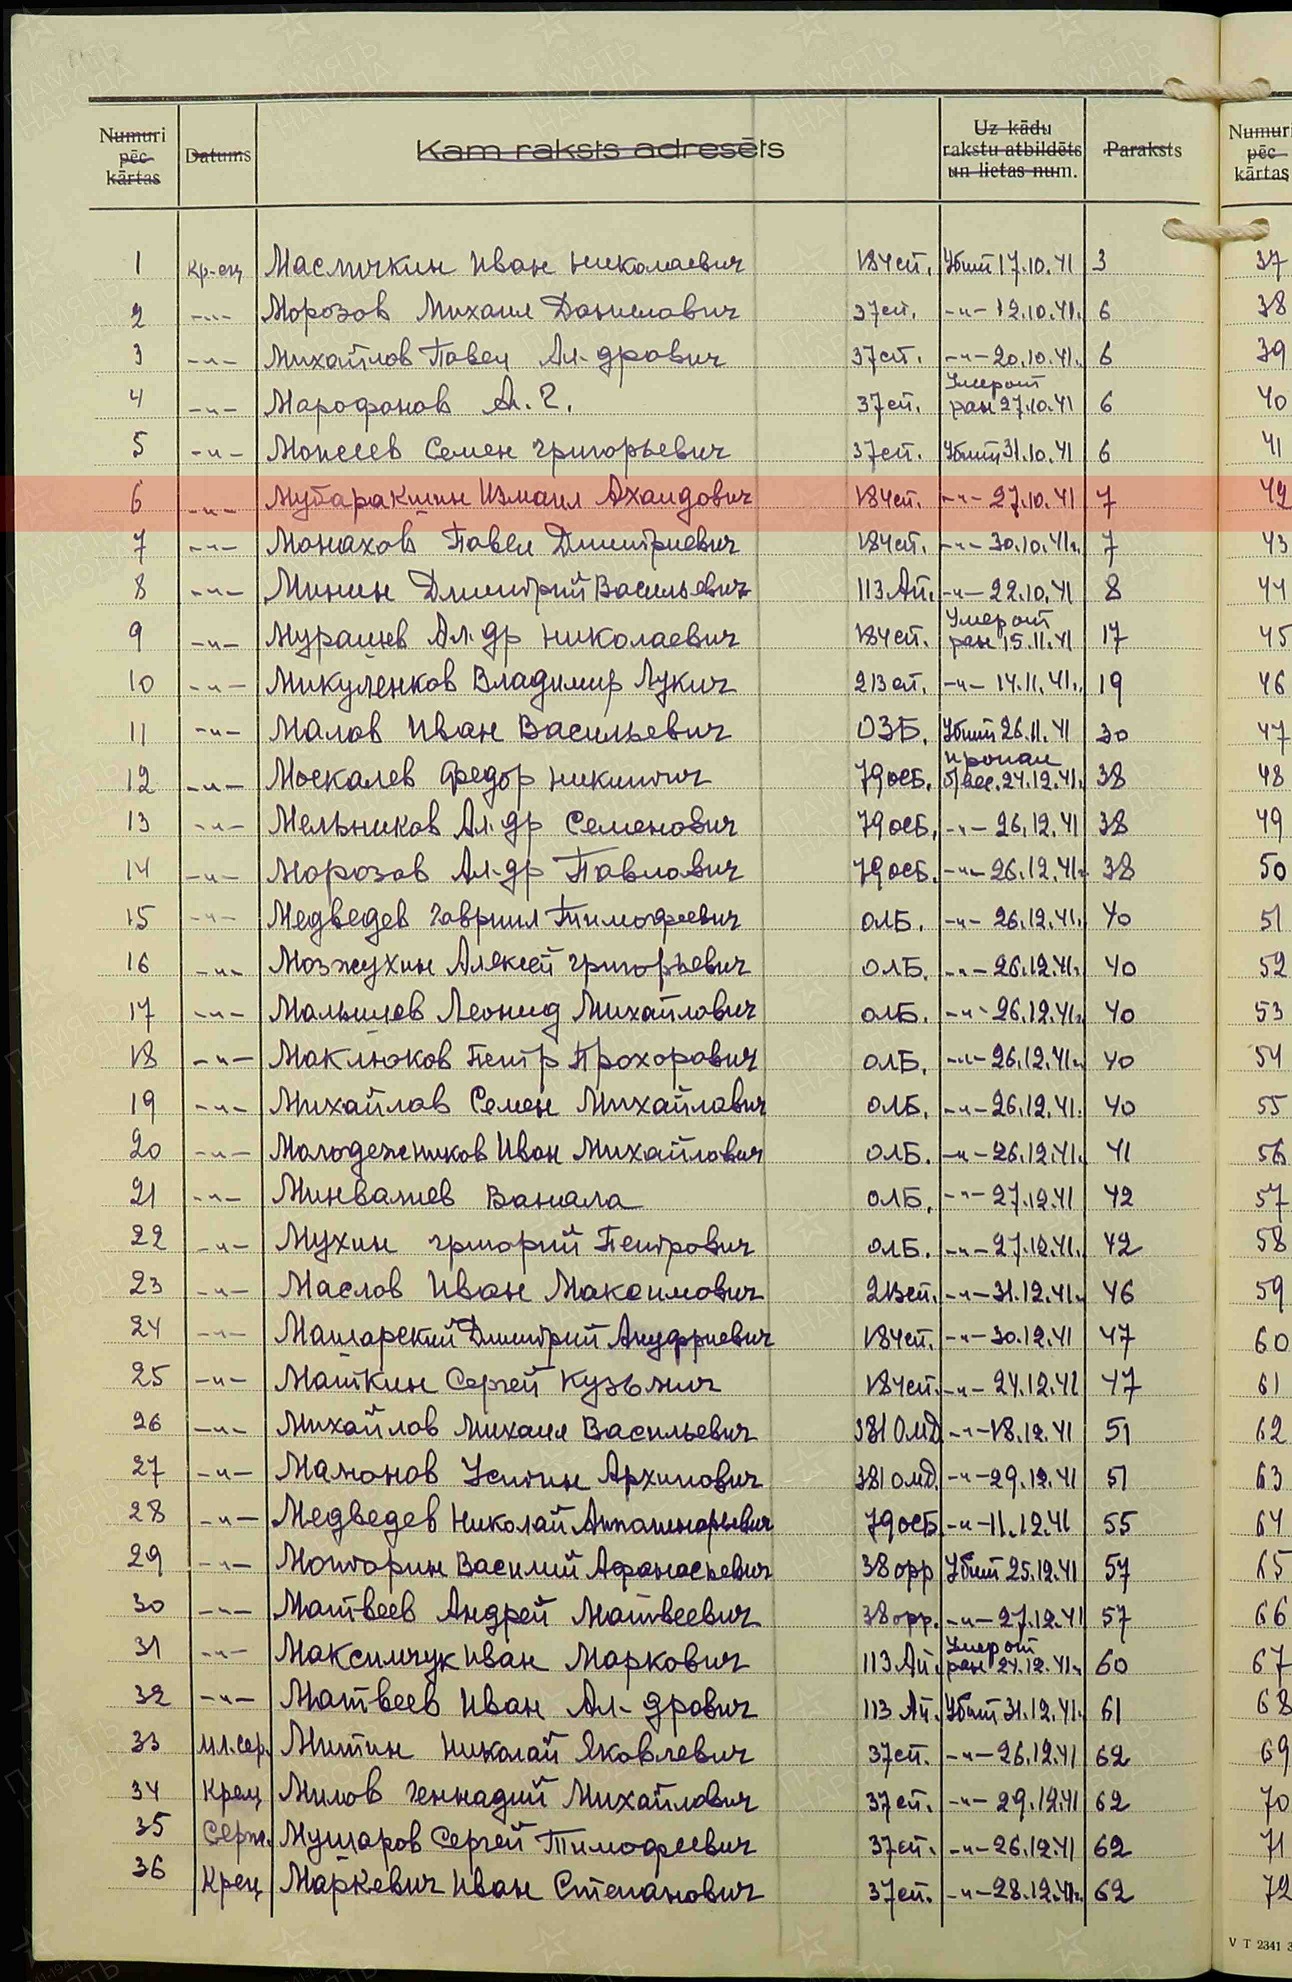 Numuri pēc kārtas Datums Kam raksts adresēts Uz kādu rakstu atbildēts un lietas num. Paraksts Numuri pēc kārtas
1 Кр-ец Масличкин Иван Николаевич 184 сп. Убит 17.10.41 3 37
2 -"- Морозов Михаил Данилович 37 сп. -"- 12.10.41. 6 38
3 -"- Михайлов Павел Ал-дрович 37 сп. -"- 20.10.41. 6 39
4 -"- Марофанов Ал. Г. 37 сп. Умер от ран 27.10.41 6 40
5 -"- Моисеев Семен Григорьевич 37 сп. Убит 31.10.41 6 41
6 -"- Мубаракшин Измаил Ахаидович 184 сп. -"- 27.10.41 7 42
7 -"- Монахов Павел Дмитриевич 184 сп. -"- 30.10.41г. 7 43
8 -"- Минин Дмитрий Васильевич 113 Ап. -"- 22.10.41 8 44
9 -"- Мурашев Ал-др Николаевич 184 сп. Умер от ран 15.11.41 17 45
10 -"- Микуленков Владимир Лукич 213 сп. -"- 14.11.41г. 19 46
11 -"- Малов Иван Васильевич ОЗБ. Убит 26.11.41 30 47
12 -"- Москалев Федор Никитич 79 осб. пропал б/вес. 24.12.41. 38 48
13 -"- Мельников Ал-др Семенович 79 осб. -"- 26.12.41 38 49
14 -"- Морозов Ал-др Павлович 79 осб. -"- 26.12.41г 38 50
15 -"- Медведев Гавриил Тимофеевич ОЛБ. -"- 26.12.41. 40 51
16 -"- Мозжухин Алексей Григорьевич ОЛБ. -"- 26.12.41г. 40 52
17 -"- Малышев Леонид Михайлович ОЛБ. -"- 26.12.41г 40 53
18 -"- Маклюков Петр Прохорович ОЛБ. -"- 26.12.41г 40 54
19 -"- Михайлов Семен Михайлович ОЛБ. -"- 26.12.41. 40 55
20 -"- Молодежников Иван Михайлович ОЛБ. -"- 26.12.41. 41 56
21 -"- Минвалиев Ванала ОЛБ. -"- 27.12.41 42 57
22 -"- Мухин Григорий Петрович ОЛБ. -"- 27.12.41. 42 58
23 -"- Маслов Иван Максимович 213 сп. -"- 31.12.41г 46 59
24 -"- Машарский Дмитрий Ануфриевич 184 сп. -"- 30.12.41 47 60
25 -"- Маткин Сергей Кузьмич 184 сп. -"- 24.12.41 47 61
26 -"- Михайлов Михаил Васильевич 381 ОМД -"- 18.12.41 51 62
27 -"- Мамонов Устин Архипович 381 ОМД. -"- 29.12.41 51 63
28 -"- Медведев Николай 79 осб -"- 11.12.41 55 64
29 -"- Моторин Василий Афанасьевич 38 орр Убит 25.12.41 57 65
30 -"- Матвеев Андрей Матвеевич 38 орр. -"- 27.12.41 57 66
31 -"- Максимчук Иван Маркович 113 Ап. Умер от ран 24.12.41г 60 67
32 -"- Матвеев Иван Ал-дрович 113 Ап. Убит 31.12.41. 61 68
33 мл.сер. Митин Николай Яковлевич 37 сп. -"- 26.12.41 62 69
34 Крец Милов Геннадий Михайлович 37 сп. -"- 29.12.41 62 70
35 Серж. Мушаров Сергей Тимофеевич 37 сп. -"- 26.12.41 62 71
36 Крец Маркевич Иван Степанович 37 сп. -"- 28.12.41г. 62 72
V T 2341